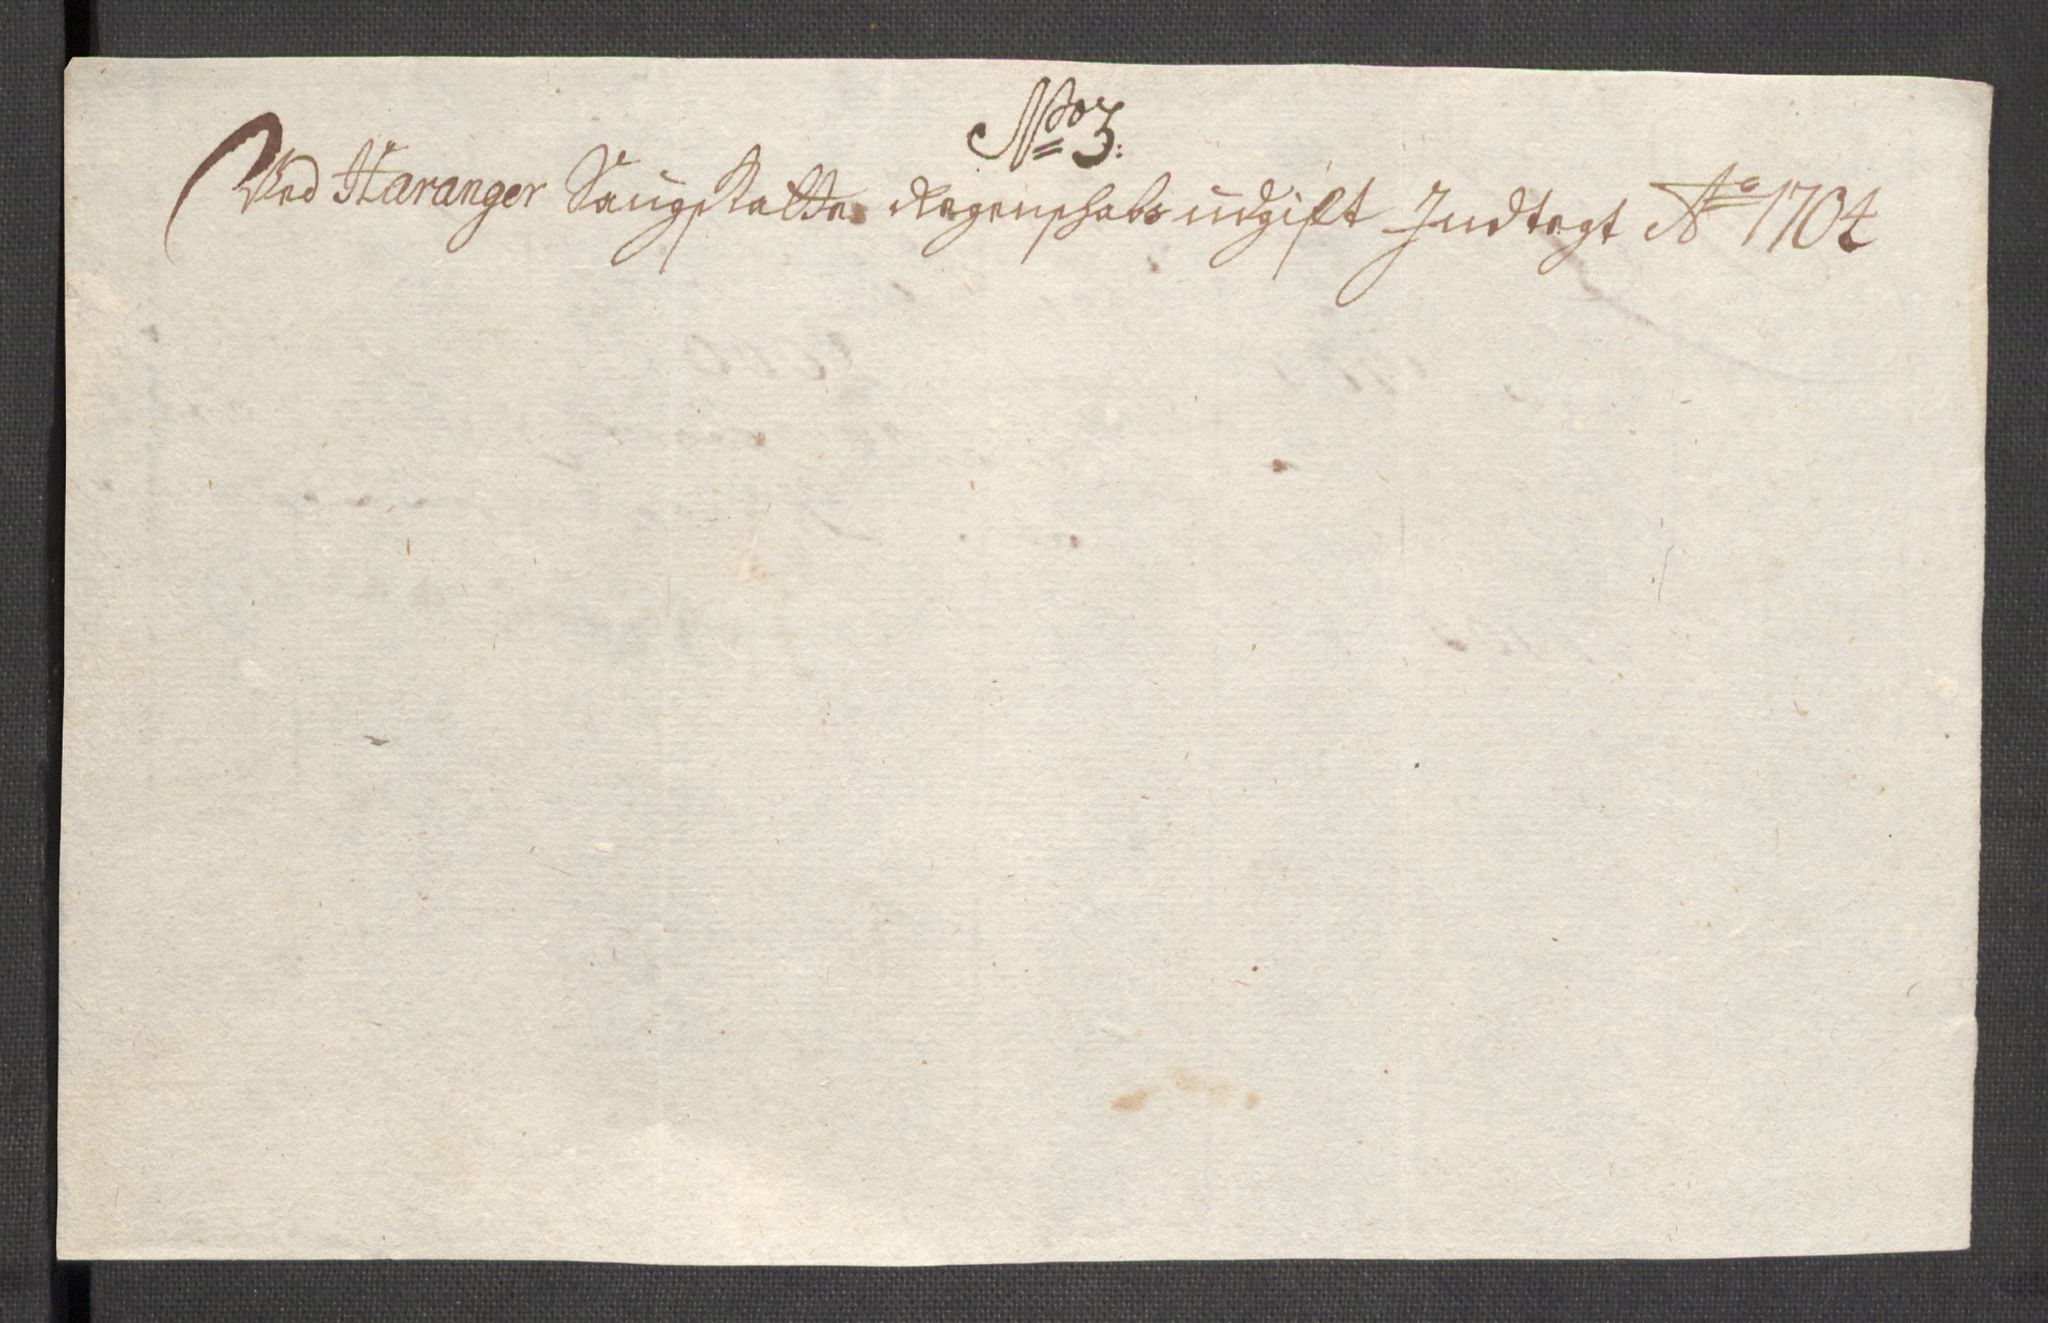 No 3:
Ved Haranger Saugskatts Regenschabs udgift Indtegt Ao 1704